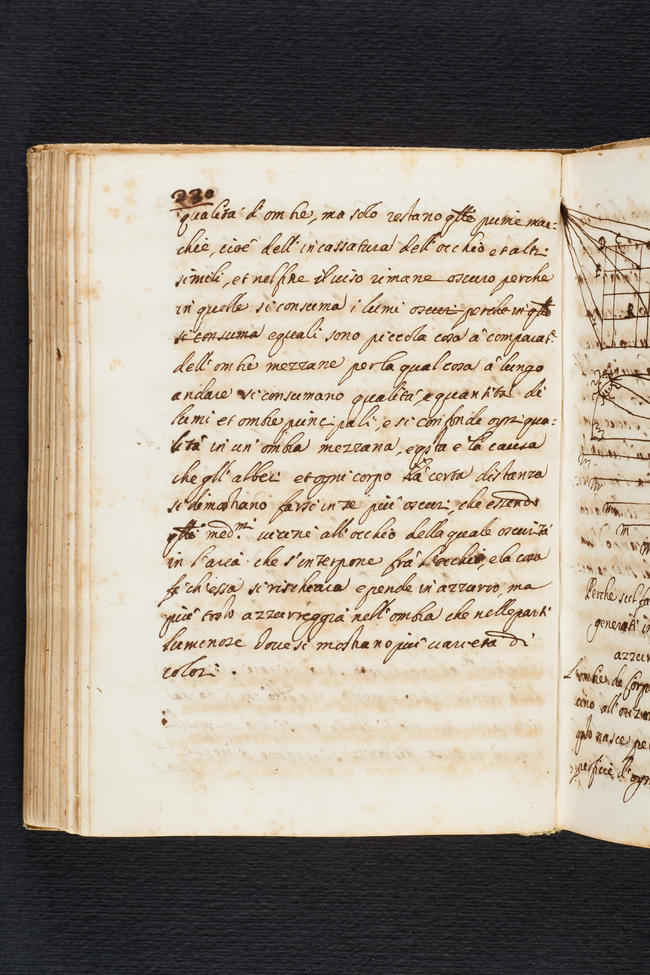 220
qualità d'ombre, ma solo restano q̃lle prime mac=
chie, cioè dell'incassatura dell'occhio et altri
simili, et nel fine il uiso rimane oscuro perche
in quelle si consuma i lumi oscuri perche in q̃lle
si consuma e quali sono piccola cosa à comparat.
dell'ombre mezzane per la qual cosa à lungo
andare si consumano qualità, e quantità di
lumi et ombre principali, e si confonde ogni qua=
lità in un'ombra mezzana, e q̃sta è la causa
che gli alberi et ogni corpo à certa distanza
si dimostrano farsi in se più oscuri, che essendo
q̃lli med.mi uicini all'occhio della quale oscurità
in l'aria che s'interpone frà l'occhio, e la cosa
fà ch'essa si rischiara e pende in azzurro, ma
più tosto azzurreggia nell'ombra che nelle parti
luminose doue si mostrano più uarietà di
colori.
Perche sul fa
generati i
azzur
L'ombre de Corp
cino all'orizon
q̃sto nasce pe
superficie d'ogn